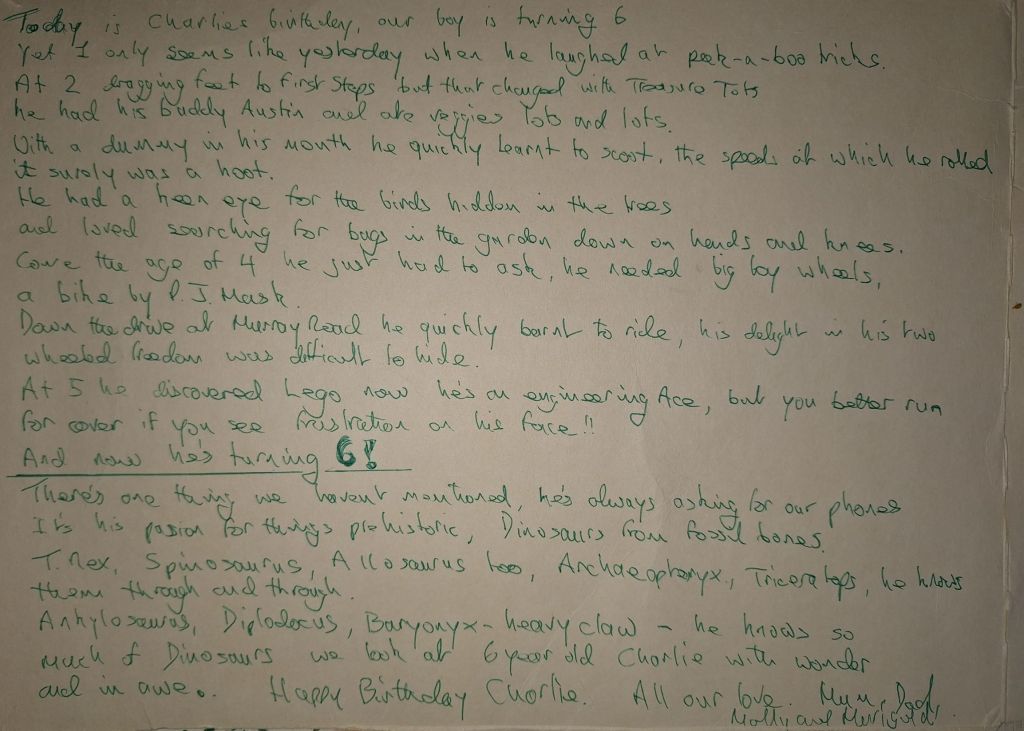 Today is Charlies birthday, our boy is turning 6
Yet I only seems like yesterday when he laughed at peek-a-boo tricks.
At 2 dragging feet to first steps but that changed with Treasure Tots
he had his buddy Austin and ate veggies lots and lots.
With a dummy in his mouth he quickly learnt to scoot, the speeds at which he rolled
it surely was a hoot.
He had a keen eye for the birds hidden in the trees
and loved searching for bugs in the garden down on hands and knees.
Come the age of 4 he just had to ask, he needed big boy wheels,
a bike by P.J. Mask.
Down the drive at Murray Road he quickly learnt to ride, his delight in his two
wheeled freedom was difficult to hide.
At 5 he discovered Lego now he's an engineering Ace, but you better run
for cover if you see frustration on his face!!
And now he's turning 6!
There's one thing we havent mentioned, he's always asking for our phones
It's his passion for things prehistoric, Dinosaurs from fossil bones.
T. Rex, Spinosaurus, Allosaurus too, Archaeopteryx, Triceratops, he knows
them through and through.
Ankylosaurus, Diplodocus, Baryonyx - heavy claw - he knows so
much of Dinosaurs we look at 6 year old Charlie with wonder
and in awe.. Happy Birthday Charlie. All our love. Mum, Dad,
Molly and Marigold.